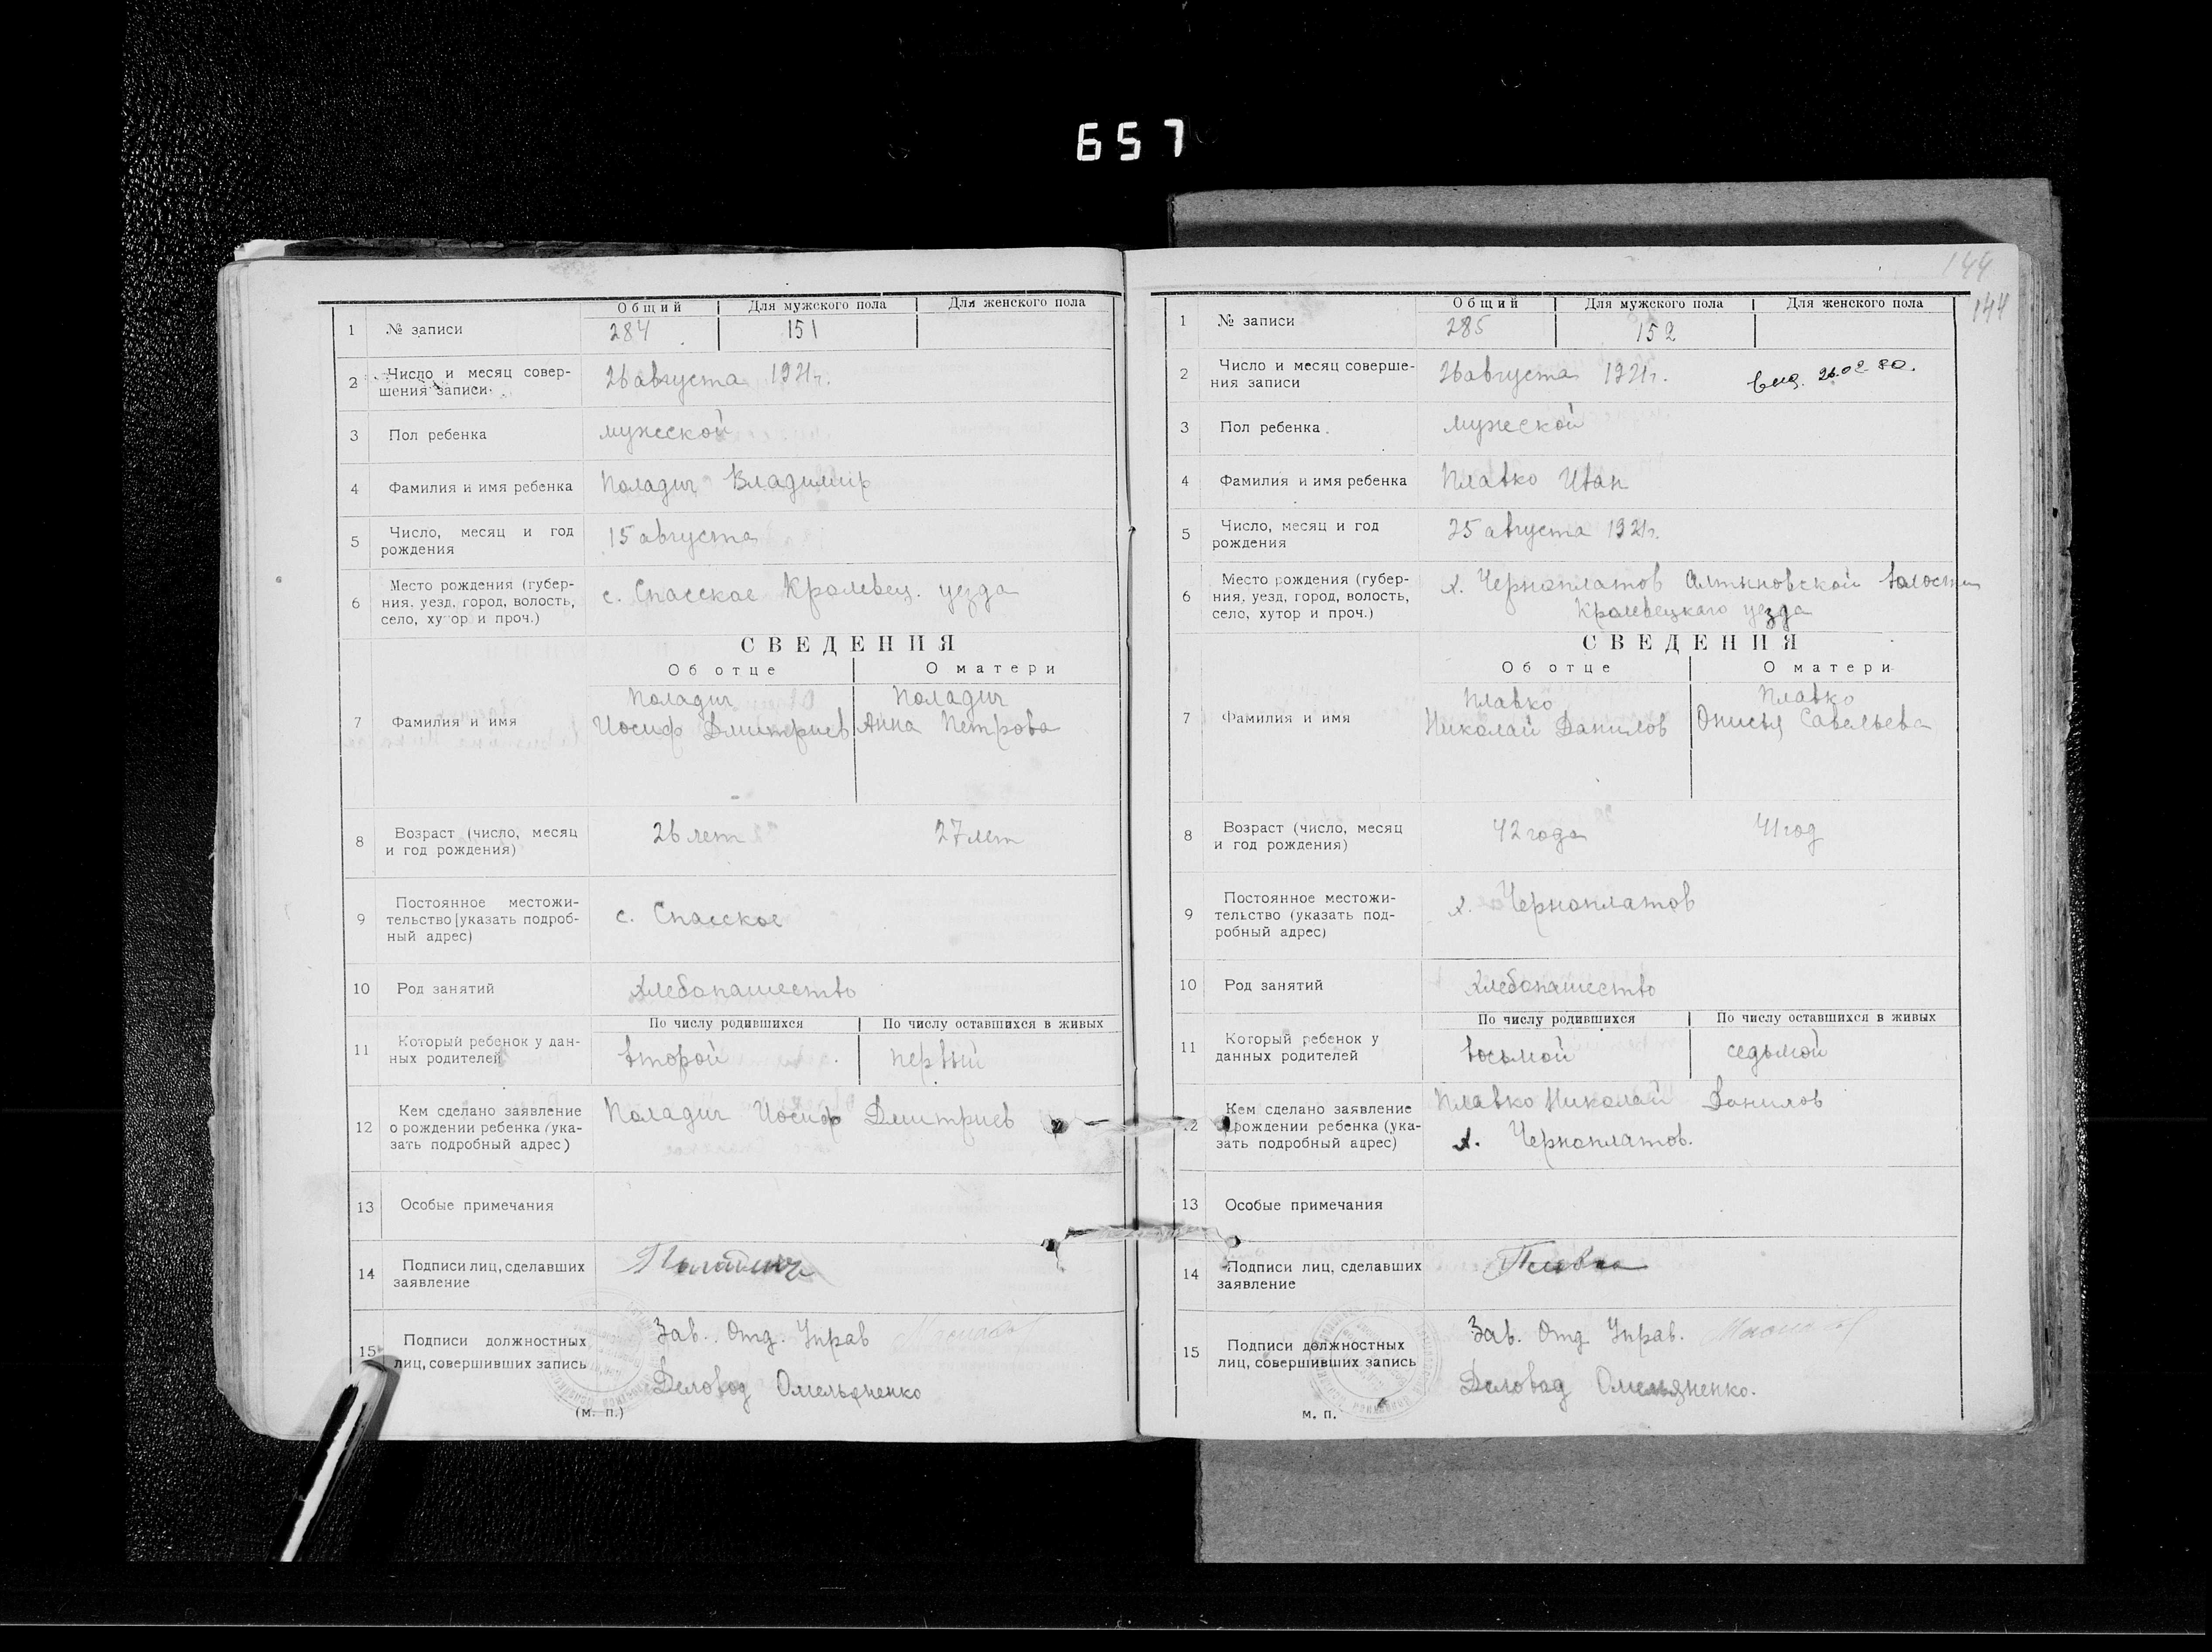 657
Общий Для мужского пола Для женского пола
1 № записи 284 151
2 Число и месяц совер-
шения записи 26 августа 1921 г.
3 Пол ребенка мужеской
4 Фамилия и имя ребенка Поладич Владимир
5 Число, месяц и год
рождения 15 августа
6 Место рождения (губер-
ния, уезд, город, волость,
село, хутор и проч.) с. Спасское Кролевец. уезда
СВЕДЕНИЯ
Об отце О матери
7 Фамилия и имя
Поладич Поладич
Иосиф Дмитриев Анна Петрова
8 Возраст (число, месяц
и год рождения) 26 лет 27 лет
9 Постоянное местожи-
тельство [указать подроб-
ный адрес) с. Спасское
10 Род занятий хлебопашество
По числу родившихся По числу оставшихся в живых
11 Который ребенок у дан-
ных родителей второй первый
12 Кем сделано заявление
о рождении ребенка (ука-
зать подробный адрес) Поладич Иосиф Дмитриев
13 Особые примечания
14 Подписи лиц, сделавших
заявление
15 Подписи должностных
лиц, совершивших запись
Зав. Отд. Управ
Деловод Омельяненко
(м. п.)
144
144
Общий Для мужского пола Для женского пола
1 № записи 285 152
2 Число и месяц соверше-
ния записи 26 августа 1921 г. 26.02.80.
3 Пол ребенка мужеской
4 Фамилия и имя ребенка Плавко Иван
5 Число, месяц и год
рождения 25 августа 1921 г.
6 Место рождения (губер-
ния, уезд, город, волость,
село, хутор и проч.) х. Черноплатов Алтыновской волости
Кролевецкаго уезда
СВЕДЕНИЯ
Об отце О матери
7 Фамилия и имя
Плавко Плавко
Николай Данилов Онисья Савельева
8 Возраст (число, месяц
и год рождения) 42 года 41 год
9 Постоянное местожи-
тельство (указать под-
робный адрес) х. Черноплатов
10 Род занятий хлебопашество
По числу родившихся По числу оставшихся в живых
11 Который ребенок у
данных родителей восьмой седьмой
12 Кем сделано заявление
о рождении ребенка (ука-
зать подробный адрес)
Плавко Николай Данилов
х. Черноплатов.
13 Особые примечания
14 Подписи лиц, сделавших
заявление Плавко
15 Подписи должностных
лиц, совершивших запись
Зав. Отд Управ.
Деловод Омельяненко.
м. п.